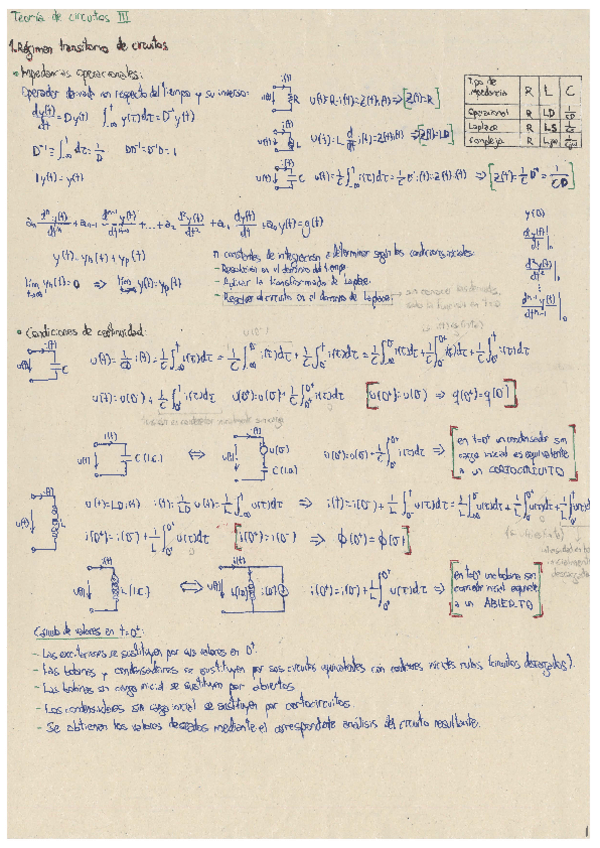 Teoría de circuitos III
1. Régimen transitorio de circuitos
• Impedancias operacionales:
Operador derivada respecto del tiempo y su inverso:
dy(t)/dt = Dy(t)   ∫ y(τ)dτ = D⁻¹y(t)
D⁻¹ ≡ ∫ dτ = 1/D   DD⁻¹ = D⁻¹D = 1
1y(t) = y(t)
i(t) u(t) R u(t) = R·i(t) = Z(t)·i(t) ⟹ [Z(t) = R]
i(t) u(t) L u(t) = L d/dt i(t) = Z(t)·i(t) ⟹ [Z(t) = LD]
i(t) u(t) C u(t) = 1/C ∫ i(τ)dτ = 1/C D⁻¹ i(t) = Z(t)·i(t) ⟹ [Z(t) = 1/C D⁻¹ = 1/CD]
Tipo de impedancia R L C
Operacional R LD 1/CD
Laplace R LS 1/CS
Compleja R Ljω 1/Cjω
aₙ dⁿy(t)/dtⁿ + aₙ₋₁ dⁿ⁻¹y(t)/dtⁿ⁻¹ + ... + a₂ d²y(t)/dt² + a₁ dy(t)/dt + a₀y(t) = g(t)
y(t) = yₕ(t) + yₚ(t)
lim yₕ(t) = 0 ⟹ lim y(t) = yₚ(t)
n constantes de integración a determinar según las condiciones iniciales:
- Resolución en el dominio del tiempo
- Aplicar la transformada de Laplace.
- Resolver el circuito en el dominio de Laplace.
y(0)
dy(t)/dt |₀
d²y(t)/dt² |₀
dⁿ⁻¹y(t)/dtⁿ⁻¹ |₀
• Condiciones de continuidad:
i(t) u(t) C u(t) = 1/CD i(t) = 1/C ∫ i(τ)dτ = 1/C ∫ i(τ)dτ + 1/C ∫ i(τ)dτ = 1/C ∫ i(τ)dτ + 1/C ∫ i(τ)dτ + 1/C ∫ i(τ)dτ
u(t) = u(0⁻) + 1/C ∫ i(τ)dτ   u(0⁺) = u(0⁻) + 1/C ∫ i(τ)dτ   [u(0⁺) = u(0⁻) ⟹ q(0⁺) = q(0⁻)]
i(t) u(t) C (I.C.) ⟺ i(t) u(t) u(0⁻) C (I.0) u(0⁺) = u(0⁻) + 1/C ∫ i(τ)dτ ⟹
en t=0⁺ un condensador sin
carga inicial es equivalente
a un CORTOCIRCUITO
i(t) u(t) L u(t) = LD i(t)   i(t) = 1/LD u(t) = 1/L ∫ u(τ)dτ ⟹ i(t) = i(0⁻) + 1/L ∫ u(τ)dτ = 1/L ∫ u(τ)dτ + 1/L ∫ u(τ)dτ + 1/L ∫ u(τ)dτ
i(0⁺) = i(0⁻) + 1/L ∫ u(τ)dτ   [i(0⁺) = i(0⁻) ⟹ ϕ(0⁺) = ϕ(0⁻)]
i(t) u(t) L (I.C.) ⟺ i(t) u(t) L (I.0) i(0⁻) i(0⁺) = i(0⁻) + 1/L ∫ u(τ)dτ ⟹
en t=0⁺ una bobina sin
corriente inicial equivale
a un ABIERTO
Cálculo de valores en t=0⁺:
- Las excitaciones se sustituyen por sus valores en 0⁺.
- Las bobinas y condensadores se sustituyen por sus circuitos equivalentes con condiciones iniciales nulas (circuitos descargados).
- Las bobinas sin carga inicial se sustituyen por abiertos
- Los condensadores sin carga inicial se sustituyen por cortocircuitos.
- Se obtienen los valores deseados mediante el correspondiente análisis del circuito resultante.
1